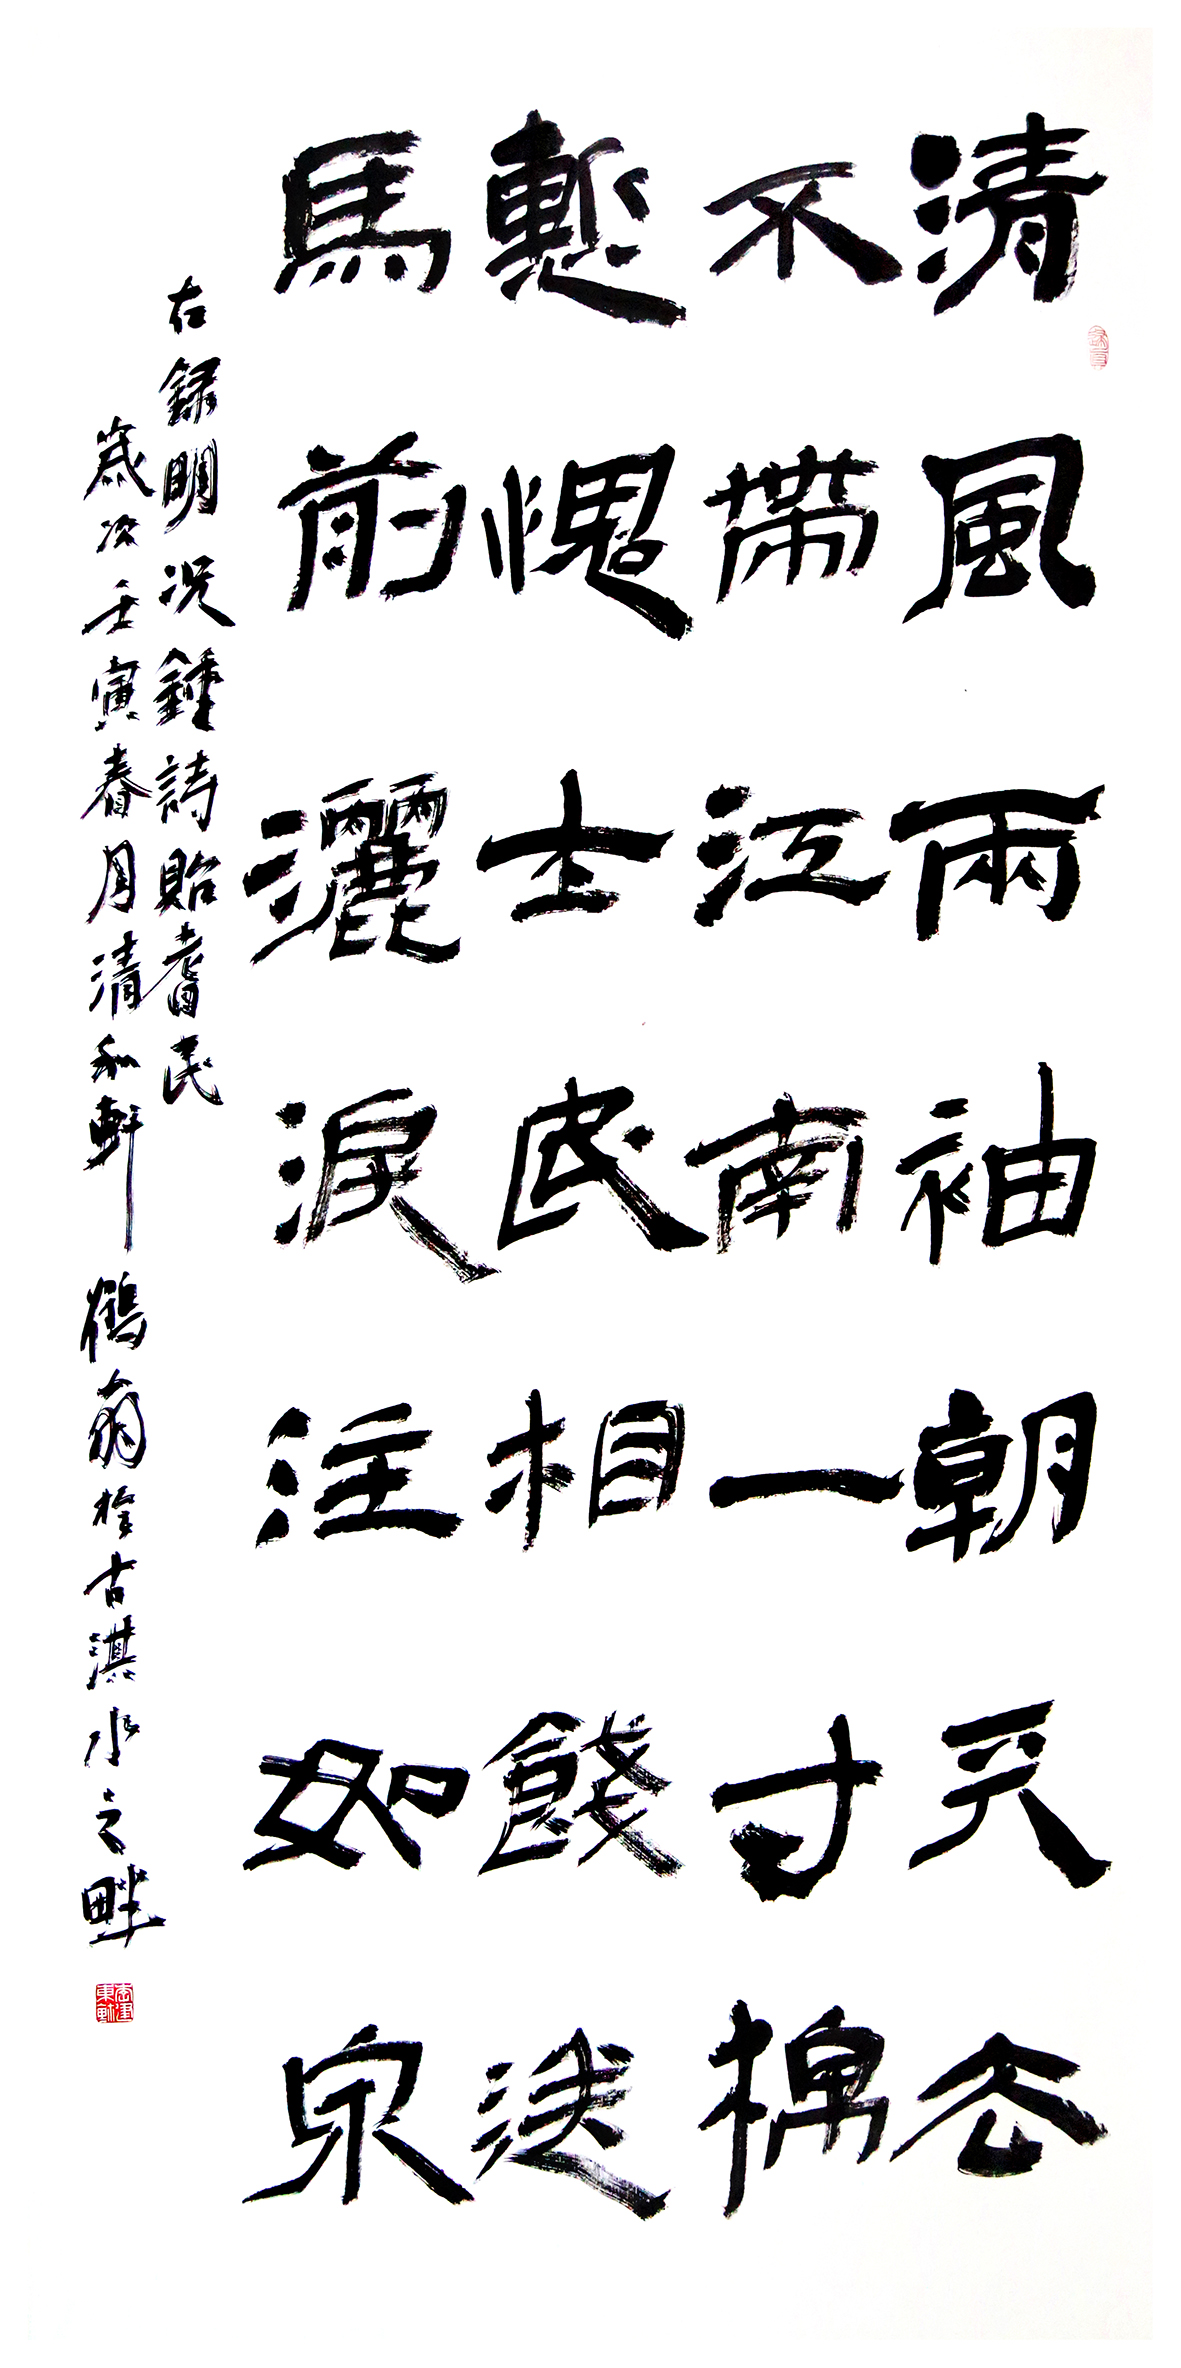 清風兩袖朝天去
不帶江南一寸棉
慙愧士民相餞送
馬前灑淚注如泉
右録明况鍾詩貽耆民
歲次壬寅春月清和軒鶴翁於古淇水之畔